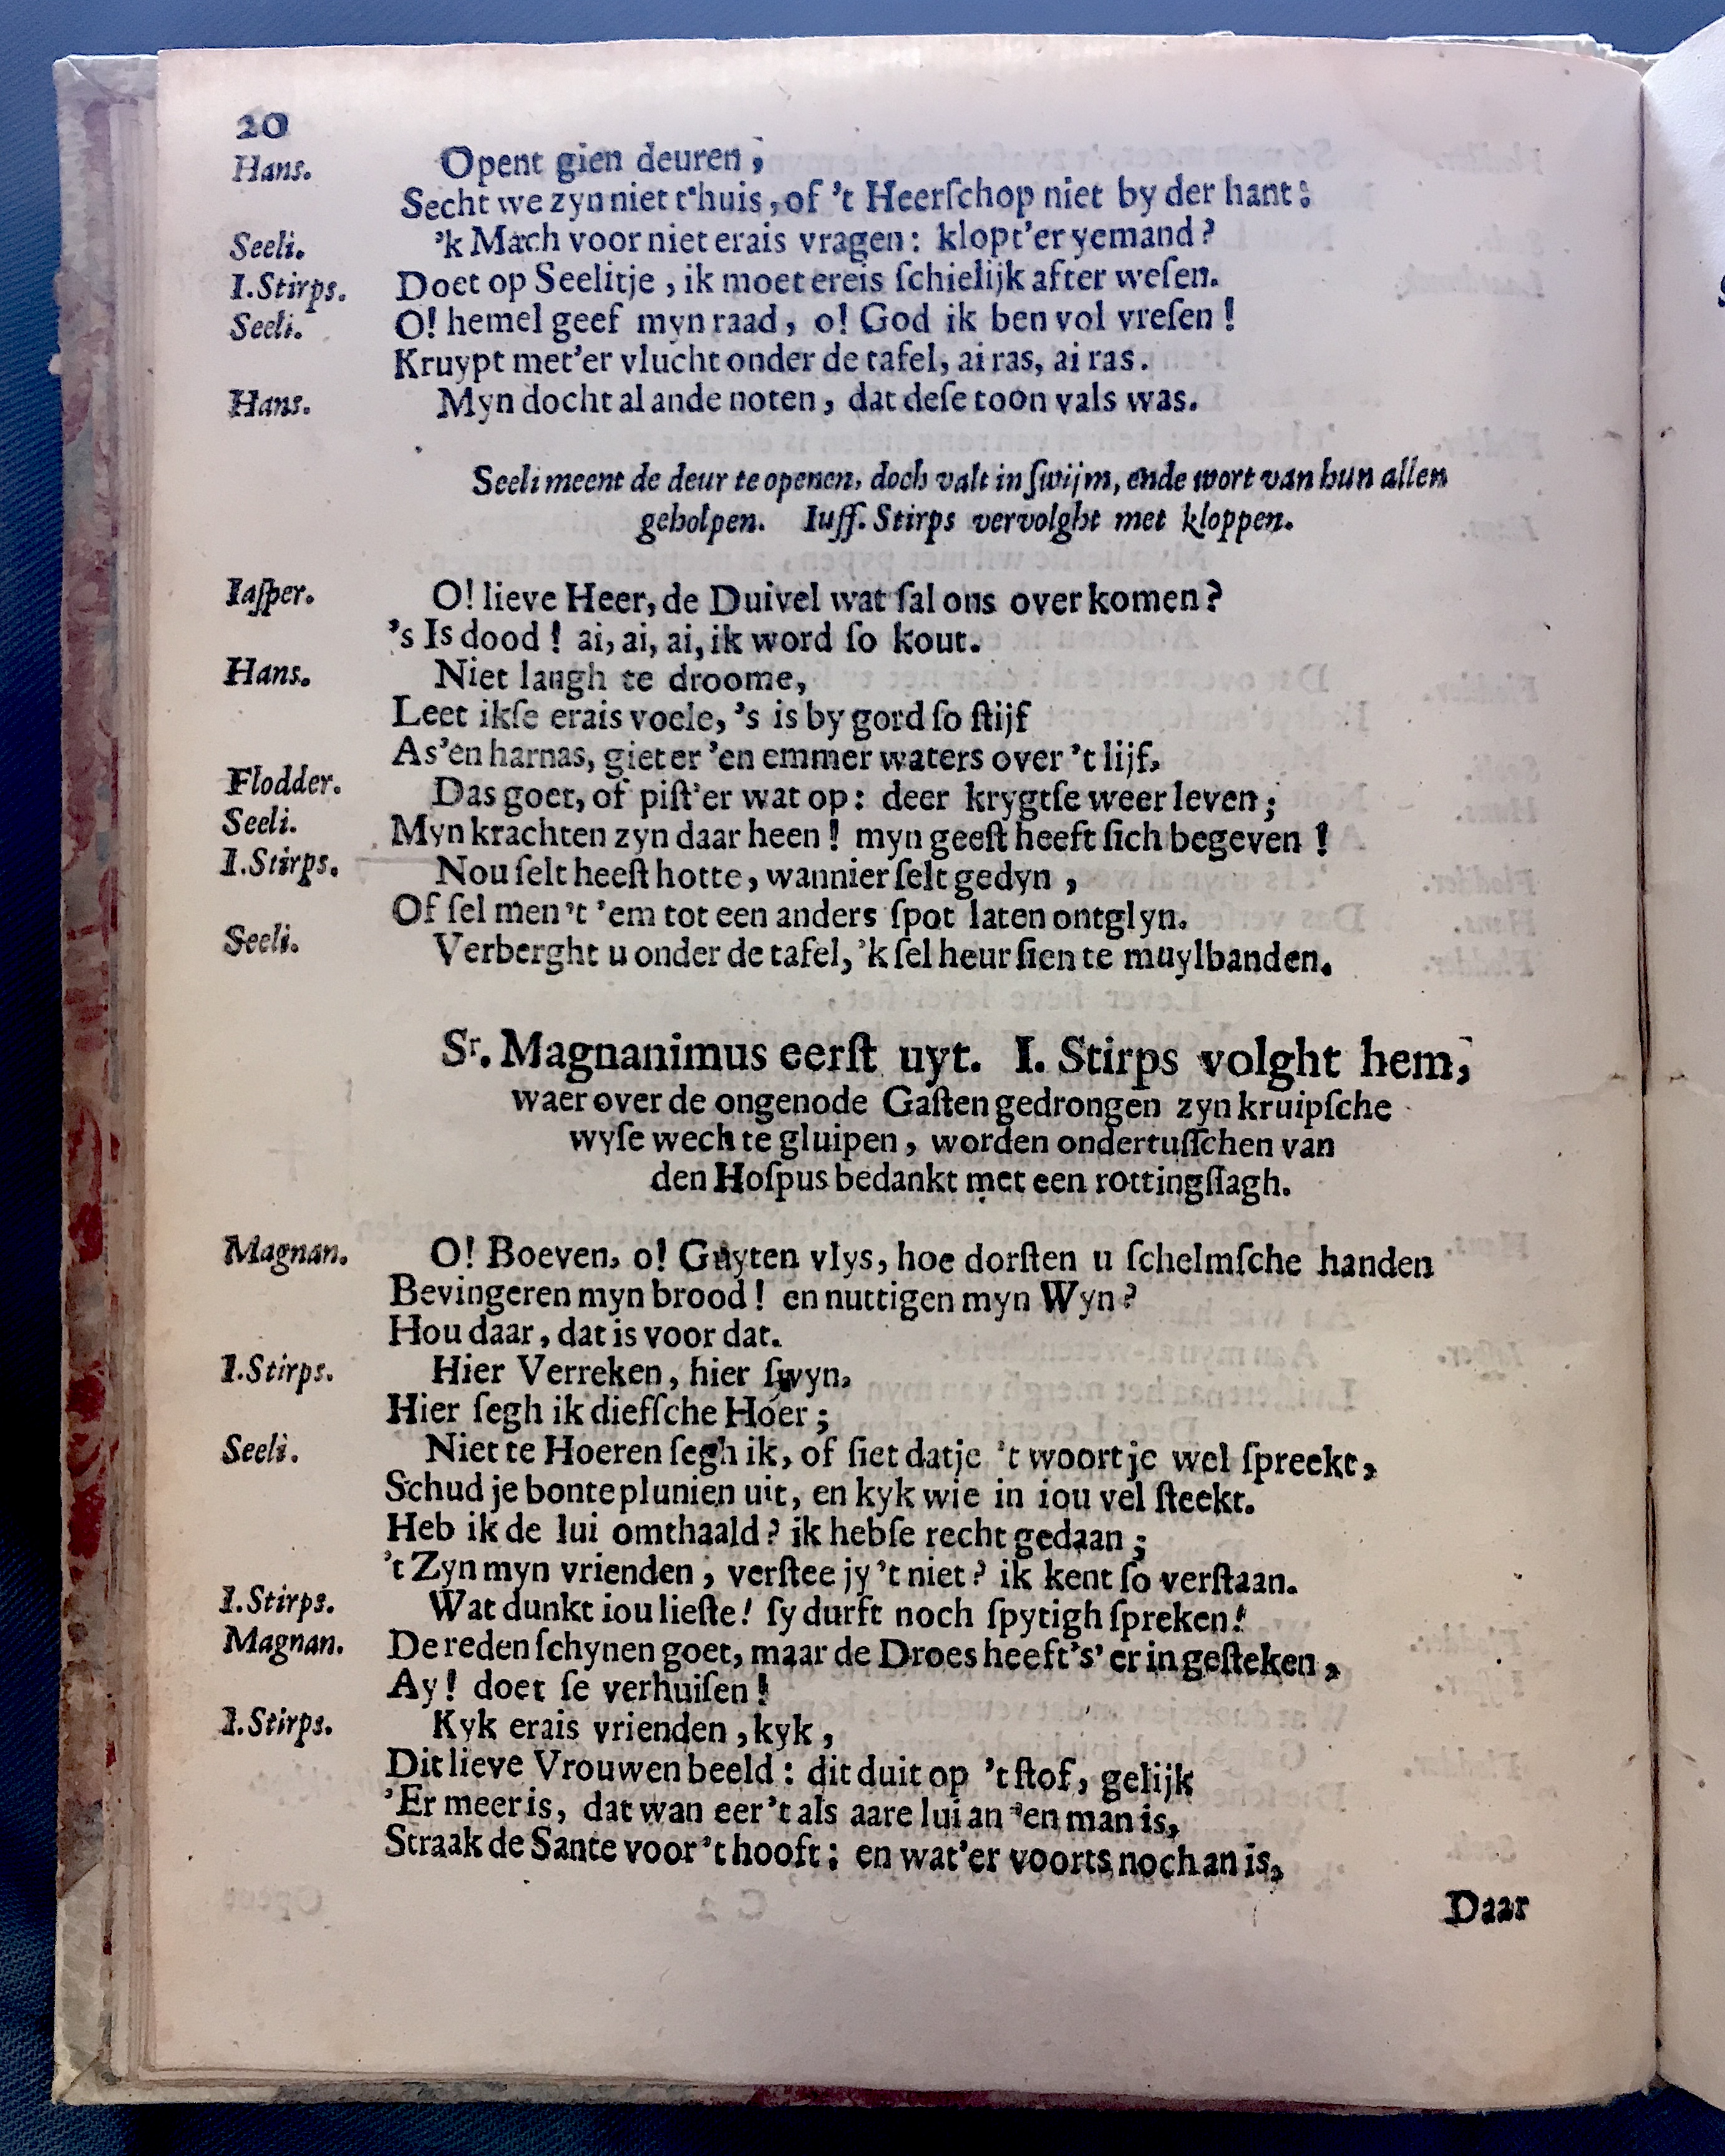 20
Hans. Opent gien deuren,
Secht we zyn niet t'huis, of 't Heerſchop niet by der hant:
Seeli. 'k Mach voor niet erais vragen: klopt'er yemand?
I.Stirps. Doet op Seelitje, ik moet ereis ſchielijk after weſen.
Seeli. O! hemel geef myn raad, o! God ik ben vol vreſen!
Kruypt met'er vlucht onder de tafel, ai ras, ai ras.
Hans. Myn docht al ande noten, dat deſe toon vals was.
Seeli meent de deur te openen, doch valt in ſwijm, ende wort van hun allen
geholpen. Iuff. Stirps vervolght met kloppen.
Iaſper. O! lieve Heer, de Duivel wat ſal ons over komen?
's Is dood! ai, ai, ai, ik word ſo kout.
Hans. Niet langh te droome,
Leet ikſe erais voele, 's is by gord ſo ſtijf
As'en harnas, giet er 'en emmer waters over 't lijf,
Flodder. Das goet, of piſt'er wat op: deer krygtſe weer leven;
Seeli. Myn krachten zyn daar heen! myn geeſt heeft ſich begeven!
I.Stirps. Nou ſelt heeſt hotte, wannier ſelt gedyn,
Of ſel men't 'em tot een anders ſpot laten ontglyn.
Seeli. Verberght u onder de tafel, 'k ſel heur ſien te muylbanden.
Sr. Magnanimus eerſt uyt. I. Stirps volght hem,
waer over de ongenode Gaſten gedrongen zyn kruipſche
wyſe wech te gluipen, worden ondertuſſchen van
den Hoſpus bedankt met een rottingſlagh.
Magnan. O! Boeven, o! Guyten vlys, hoe dorſten u ſchelmſche handen
Bevingeren myn brood! en nuttigen myn Wyn?
Hou daar, dat is voor dat.
I.Stirps. Hier Verreken, hier ſwyn,
Hier ſegh ik diefſche Hoer;
Seeli. Niet te Hoeren ſegh ik, of ſiet datje 't woortje wel ſpreekt,
Schud je bonte plunien uit, en kyk wie in iou vel ſteekt.
Heb ik de lui omthaald? ik hebſe recht gedaan;
't Zyn myn vrienden, verſtee jy 't niet? ik kent ſo verſtaan.
I.Stirps. Wat dunkt iou lieſte! ſy durft noch ſpytigh ſpreken!
Magnan. De reden ſchynen goet, maar de Droes heeft's' er in geſteken,
Ay! doet ſe verhuiſen!
I.Stirps. Kyk erais vrienden, kyk,
Dit lieve Vrouwen beeld: dit duit op 't ſtof, gelijk
'Er meer is, dat wan eer 't als aare lui an 'en man is,
Straak de Sante voor 't hooft: en wat'er voorts noch an is,
Daar